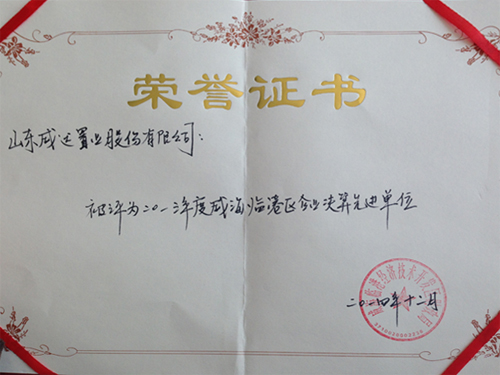 荣誉证书
山东威达置业股份有限公司:
被评为二〇一三年度威海临港区企业决算先进单位
二〇一四年十二月